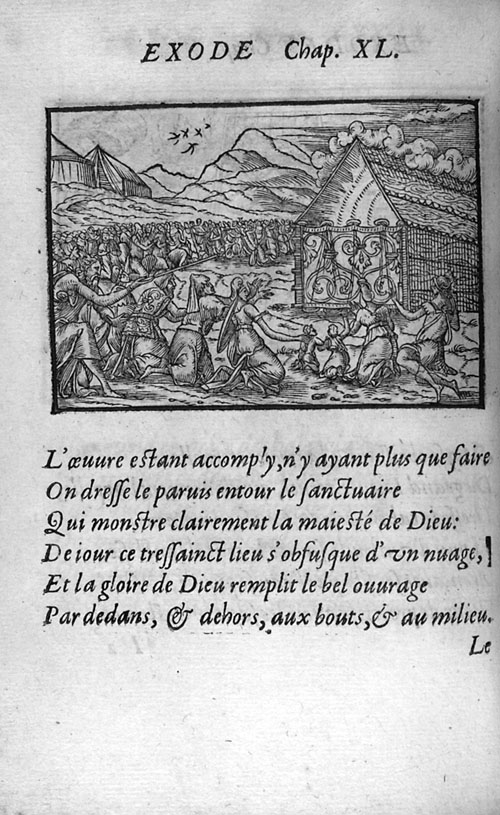 EXODE Chap. XL.
L'œuure estant accomply, n'y ayant plus que faire
On dresse le paruis entour le sanctuaire
Qui monstre clairement la maiesté de Dieu:
De iour ce tressainct lieu s'obfusque d'vn nuage,
Et la gloire de Dieu remplit le bel ouurage
Par dedans, & dehors, aux bouts, & au milieu.
Le